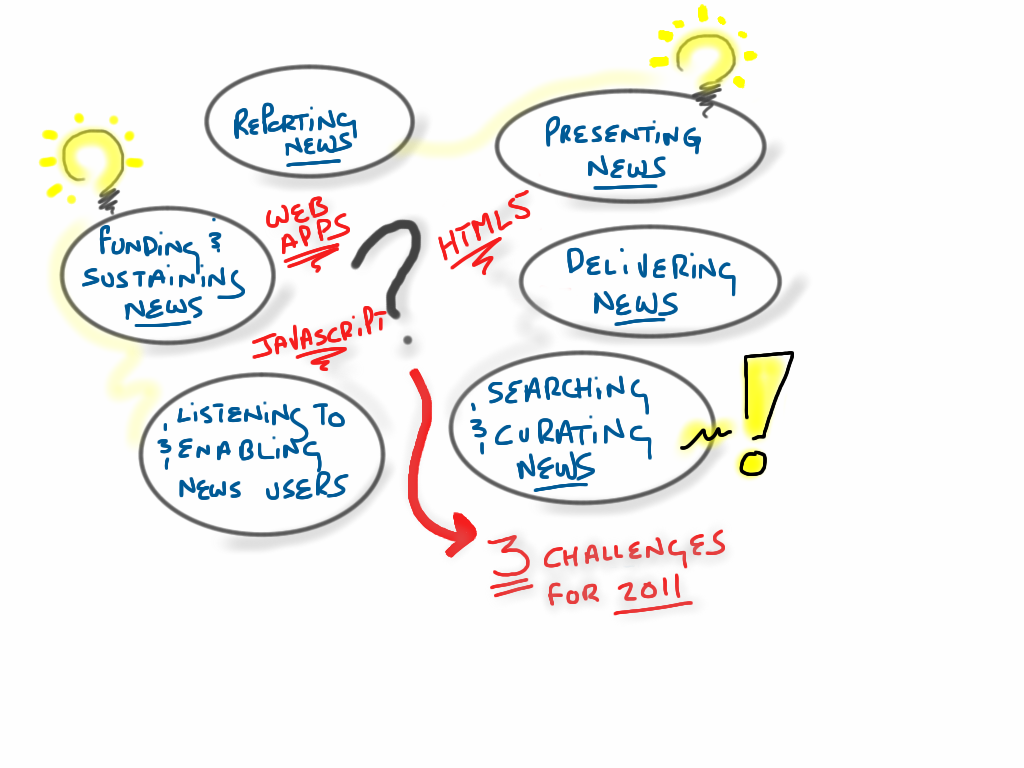 REPORTING
NEWS
PRESENTING
NEWS
WEB
APPS
HTML5
FUNDING &
SUSTAINING
NEWS
?
DELIVERING
NEWS
JAVASCRIPT
LISTENING TO
& ENABLING
NEWS USERS
SEARCHING
& CURATING
NEWS
!
3 CHALLENGES
FOR 2011